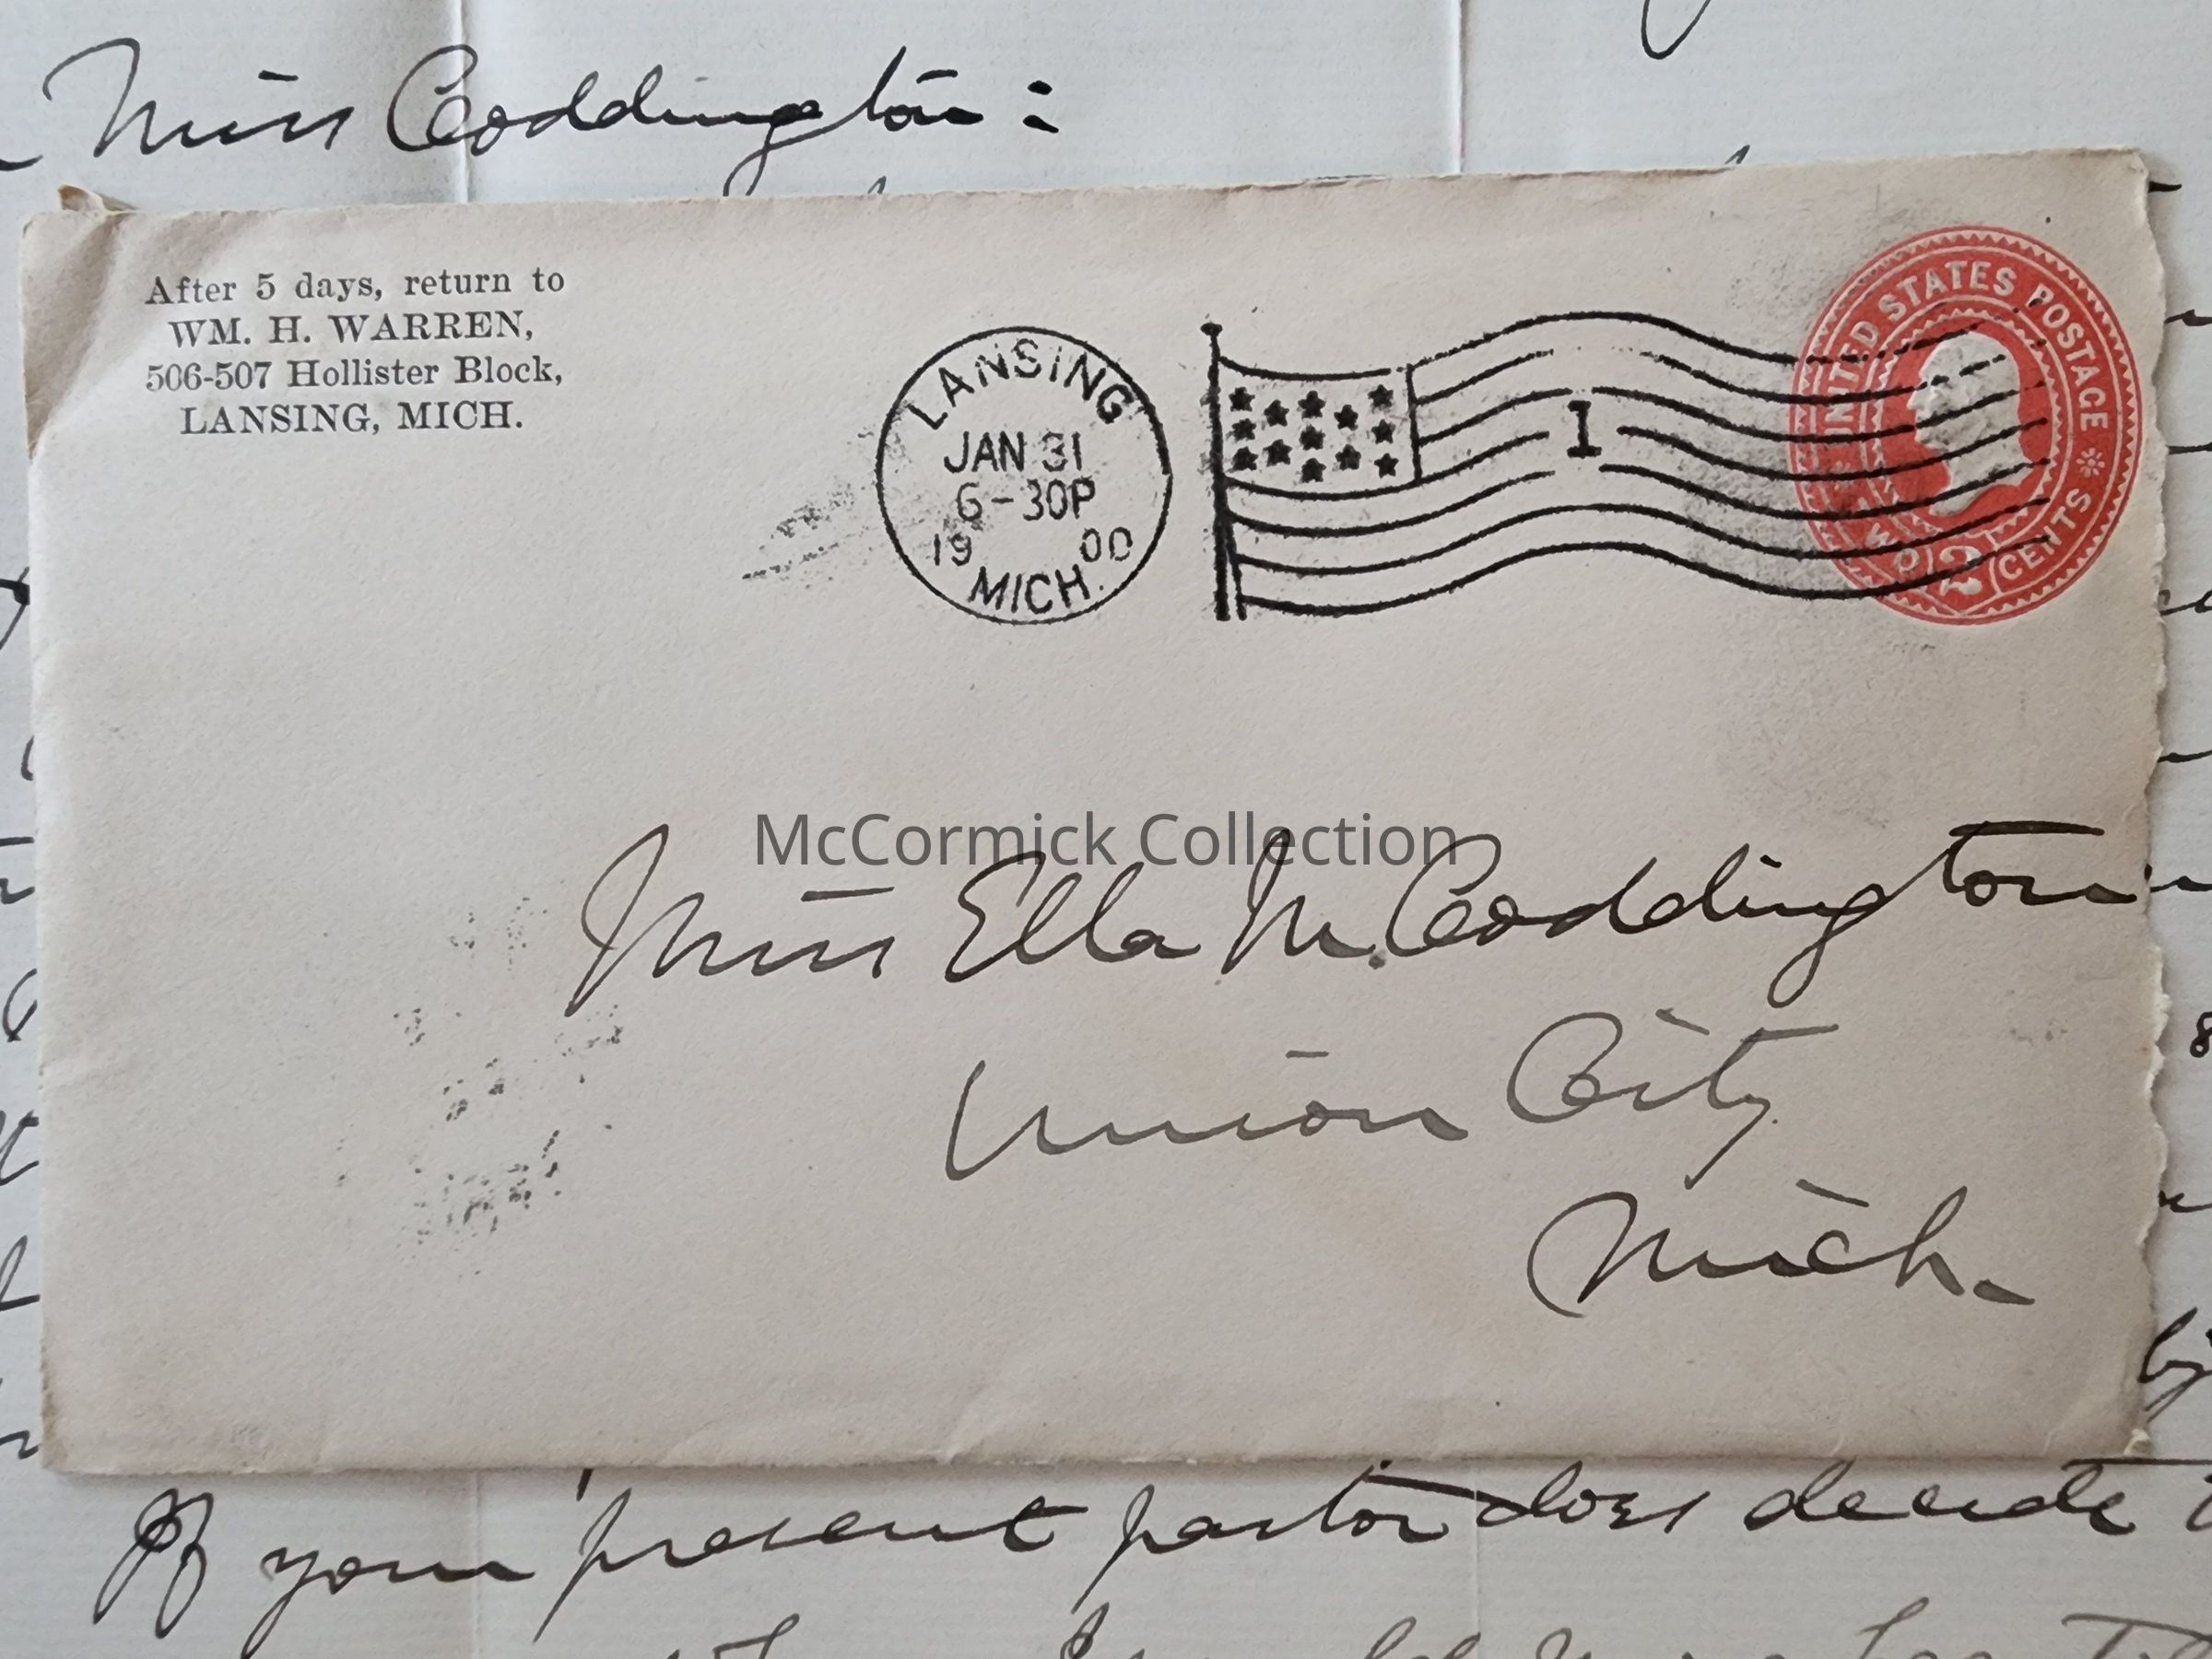 Miss Coddington:
After 5 days, return to
WM. H. WARREN,
506-507 Hollister Block,
LANSING, MICH.
LANSING
JAN 31
6-30P
19 00
MICH.
1
UNITED STATES POSTAGE
TWO 2 CENTS
McCormick Collection
Miss Ella M. Coddington
Union City
Mich.
8
If your present pastor does decide